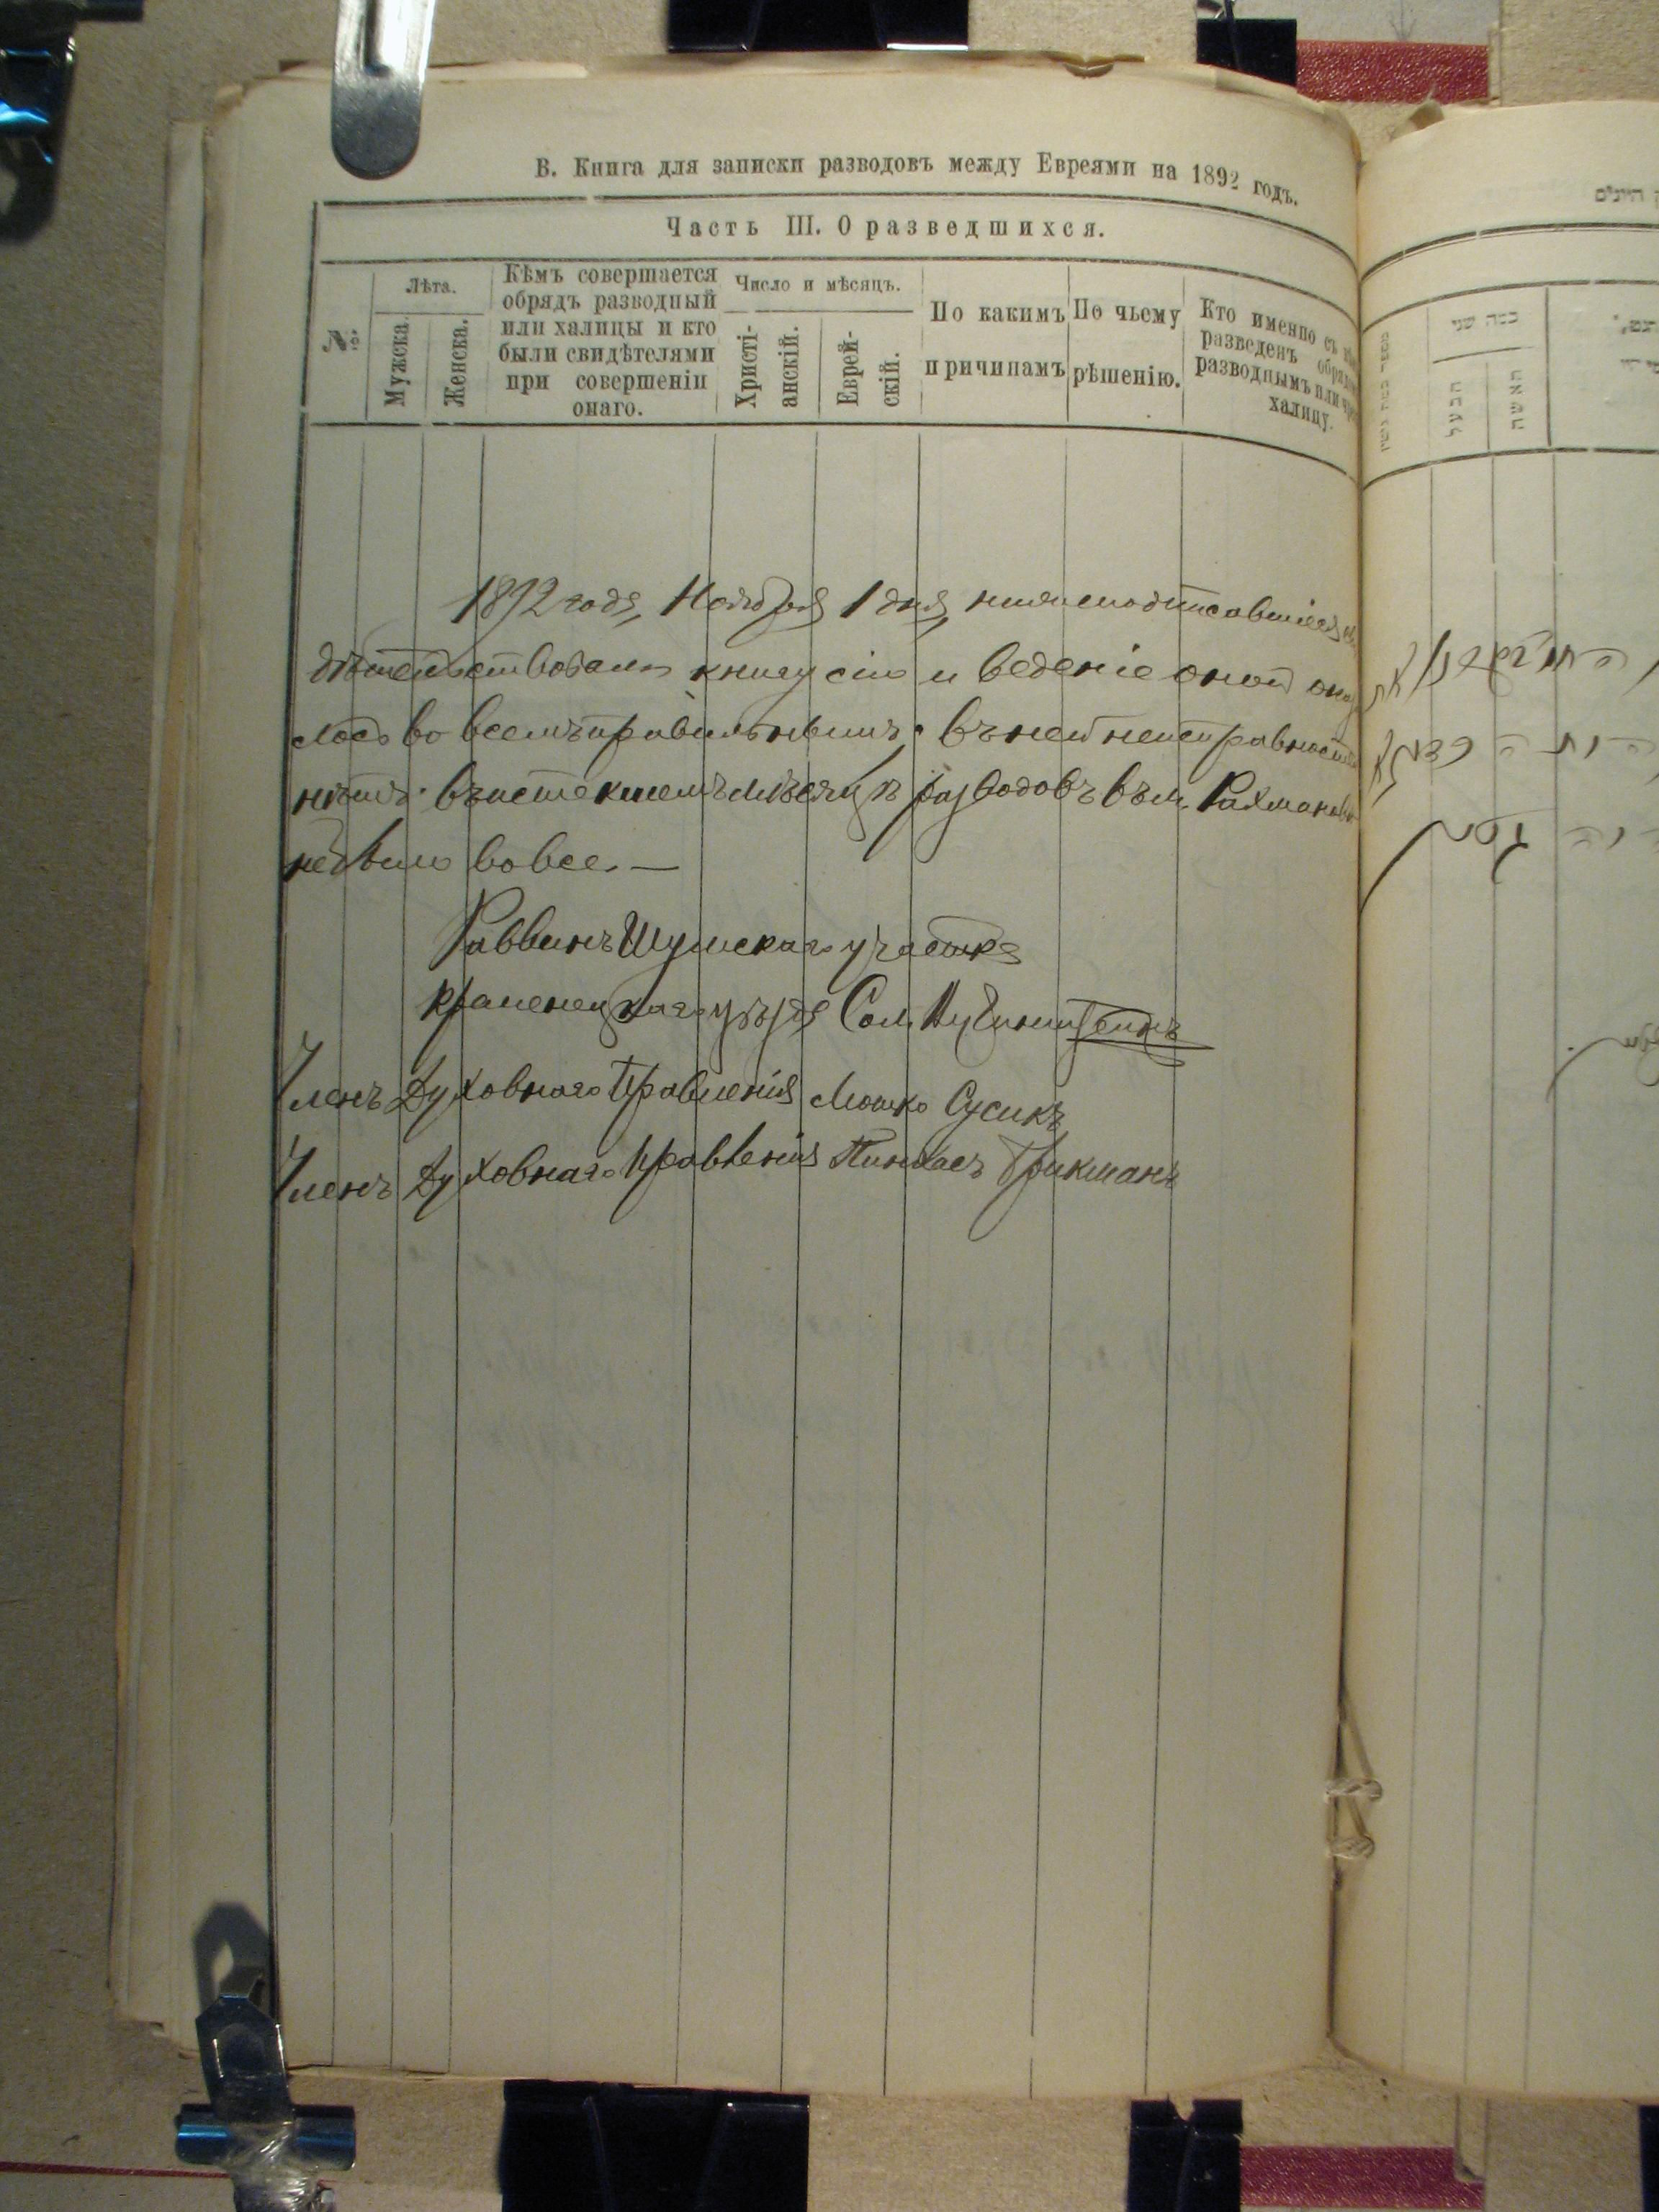 В. Книга для записки разводовъ между Евреями на 1892 годъ.
Часть III. О разведшихся.
№
Лѣта.
Мужска.
Женска.
Кѣмъ совершается
обрядъ разводный
или халицы и кто
были свидѣтелями
при совершеніи
онаго.
Число и мѣсяцъ.
Христі-
анскій.
Еврей-
скій.
По какимъ
причинамъ
По чьему
рѣшенію.
Кто именно съ
разведенъ
разводнымъ или
халицу.
1892 года, Ноября 1 дня, нижеподписавшіеся
дѣтельствовали книгу сію и веденіе оной
лось во всемъ правильнымъ; въ ней неисправности
нѣтъ. въ истекшемъ мѣсяцѣ разводовъ въ м. Рахмановѣ
небыло вовсе. —
Раввинъ Шумскаго участка
Кременецкаго уѣзда Сол.
Членъ Духовнаго Правленія Мошко Сусикъ
Членъ Духовнаго Правленія Пинхасъ Брикманъ
בעל
האשה